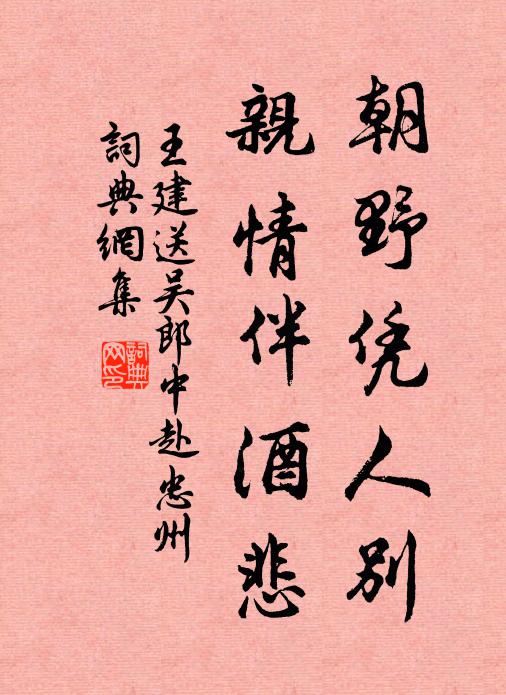 朝野凭人别
親情伴酒悲
王建送吴郎中赴忠州
詞典網集
詞典网印